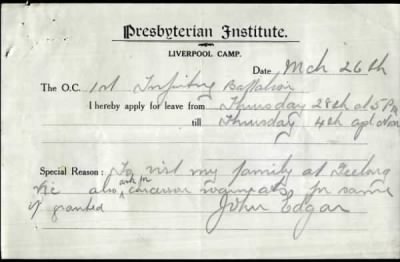 Presbyterian Institute.
LIVERPOOL CAMP.
Date Mch 26th
The O.C. 1st Infantry Battalion
I hereby apply for leave from Thursday 28th at 5 PM
till Thursday 4th apl Noon
Special Reason: To visit my family at Geelong
Vic also ask for concession warrants for same
if granted John Edgar